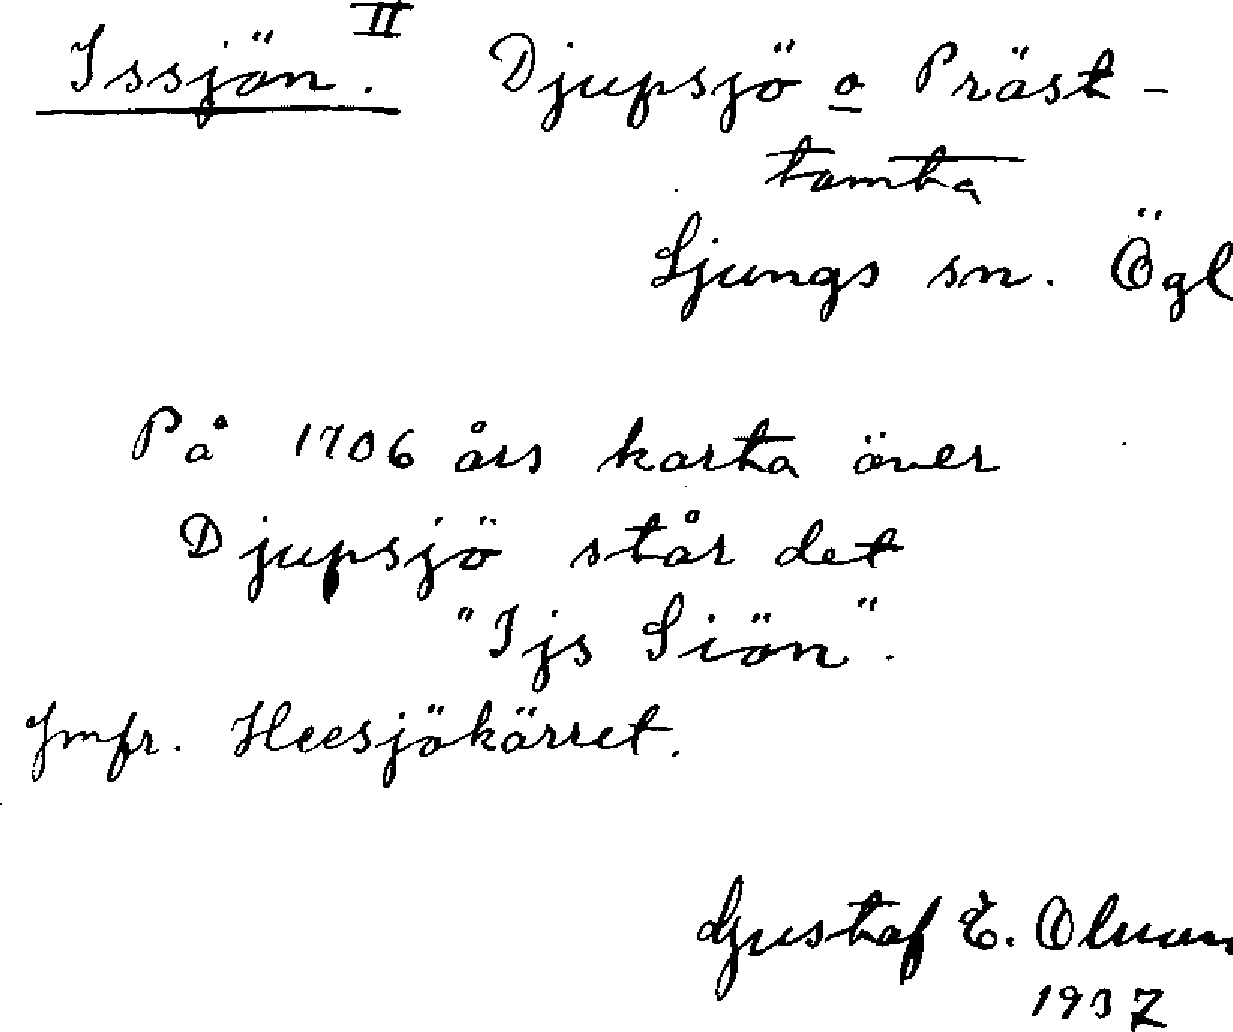 Issjön. II Djupsjö o Präst-
tomta
Ljungs sn. Ögl
På 1706 års karta över
Djupsjö står det
"Ijs Siön".
Jmfr. Heesjökärret.
Gustaf E.
1937